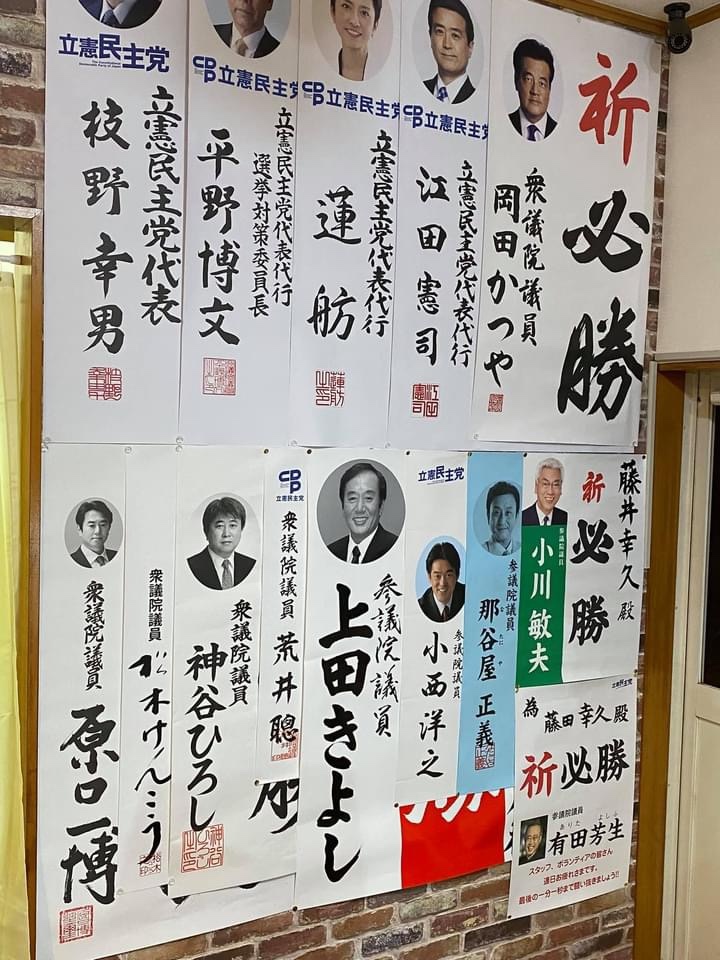 祈必勝
衆議院議員
岡田かつや
立憲民主党
立憲民主党代表代行
江田憲司
立憲民主党
立憲民主党代表代行
蓮舫
立憲民主党
立憲民主党代表代行
選挙対策委員長
平野博文
立憲民主党
The Constitutional Democratic Party of Japan
立憲民主党代表
枝野幸男
藤井幸久殿
祈必勝
参議院議員
小川敏夫
参議院議員
那谷屋正義
なたにや
立憲民主党
参議院議員
小西洋之
参議院議員
上田きよし
衆議院議員
荒井聰
衆議院議員
神谷ひろし
衆議院議員
松木けんこう
衆議院議員
原口一博
立憲民主党
為
藤田幸久殿
祈必勝
参議院議員
ありた よしふ
有田芳生
スタッフ、ボランティアの皆さん
連日お疲れさまです。
最後の一分一秒まで闘い抜きましょう!!